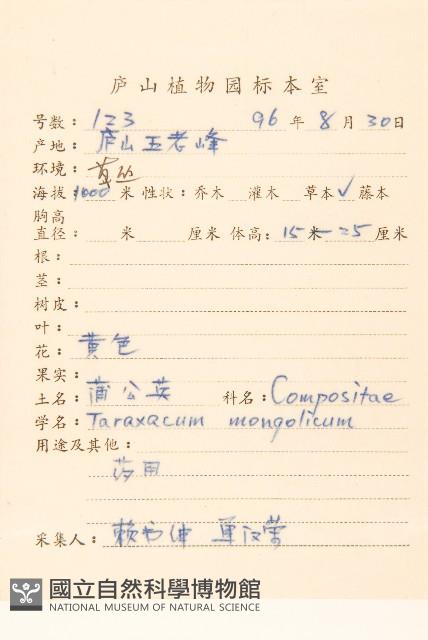 庐山植物园标本室
号数：123 96年8月30日
产地：庐山五老峰
环境：草丛
海拔：1000米 性状：乔木 灌木 草本✓ 藤本
胸高
直径： 米 厘米 体高：15米-25厘米
根：
茎：
树皮：
叶：
花：黄色
果实：
土名：蒲公英 科名：Compositae
学名：Taraxacum mongolicum
用途及其他：
药用
采集人：赖书坤
國立自然科學博物館
NATIONAL MUSEUM OF NATURAL SCIENCE